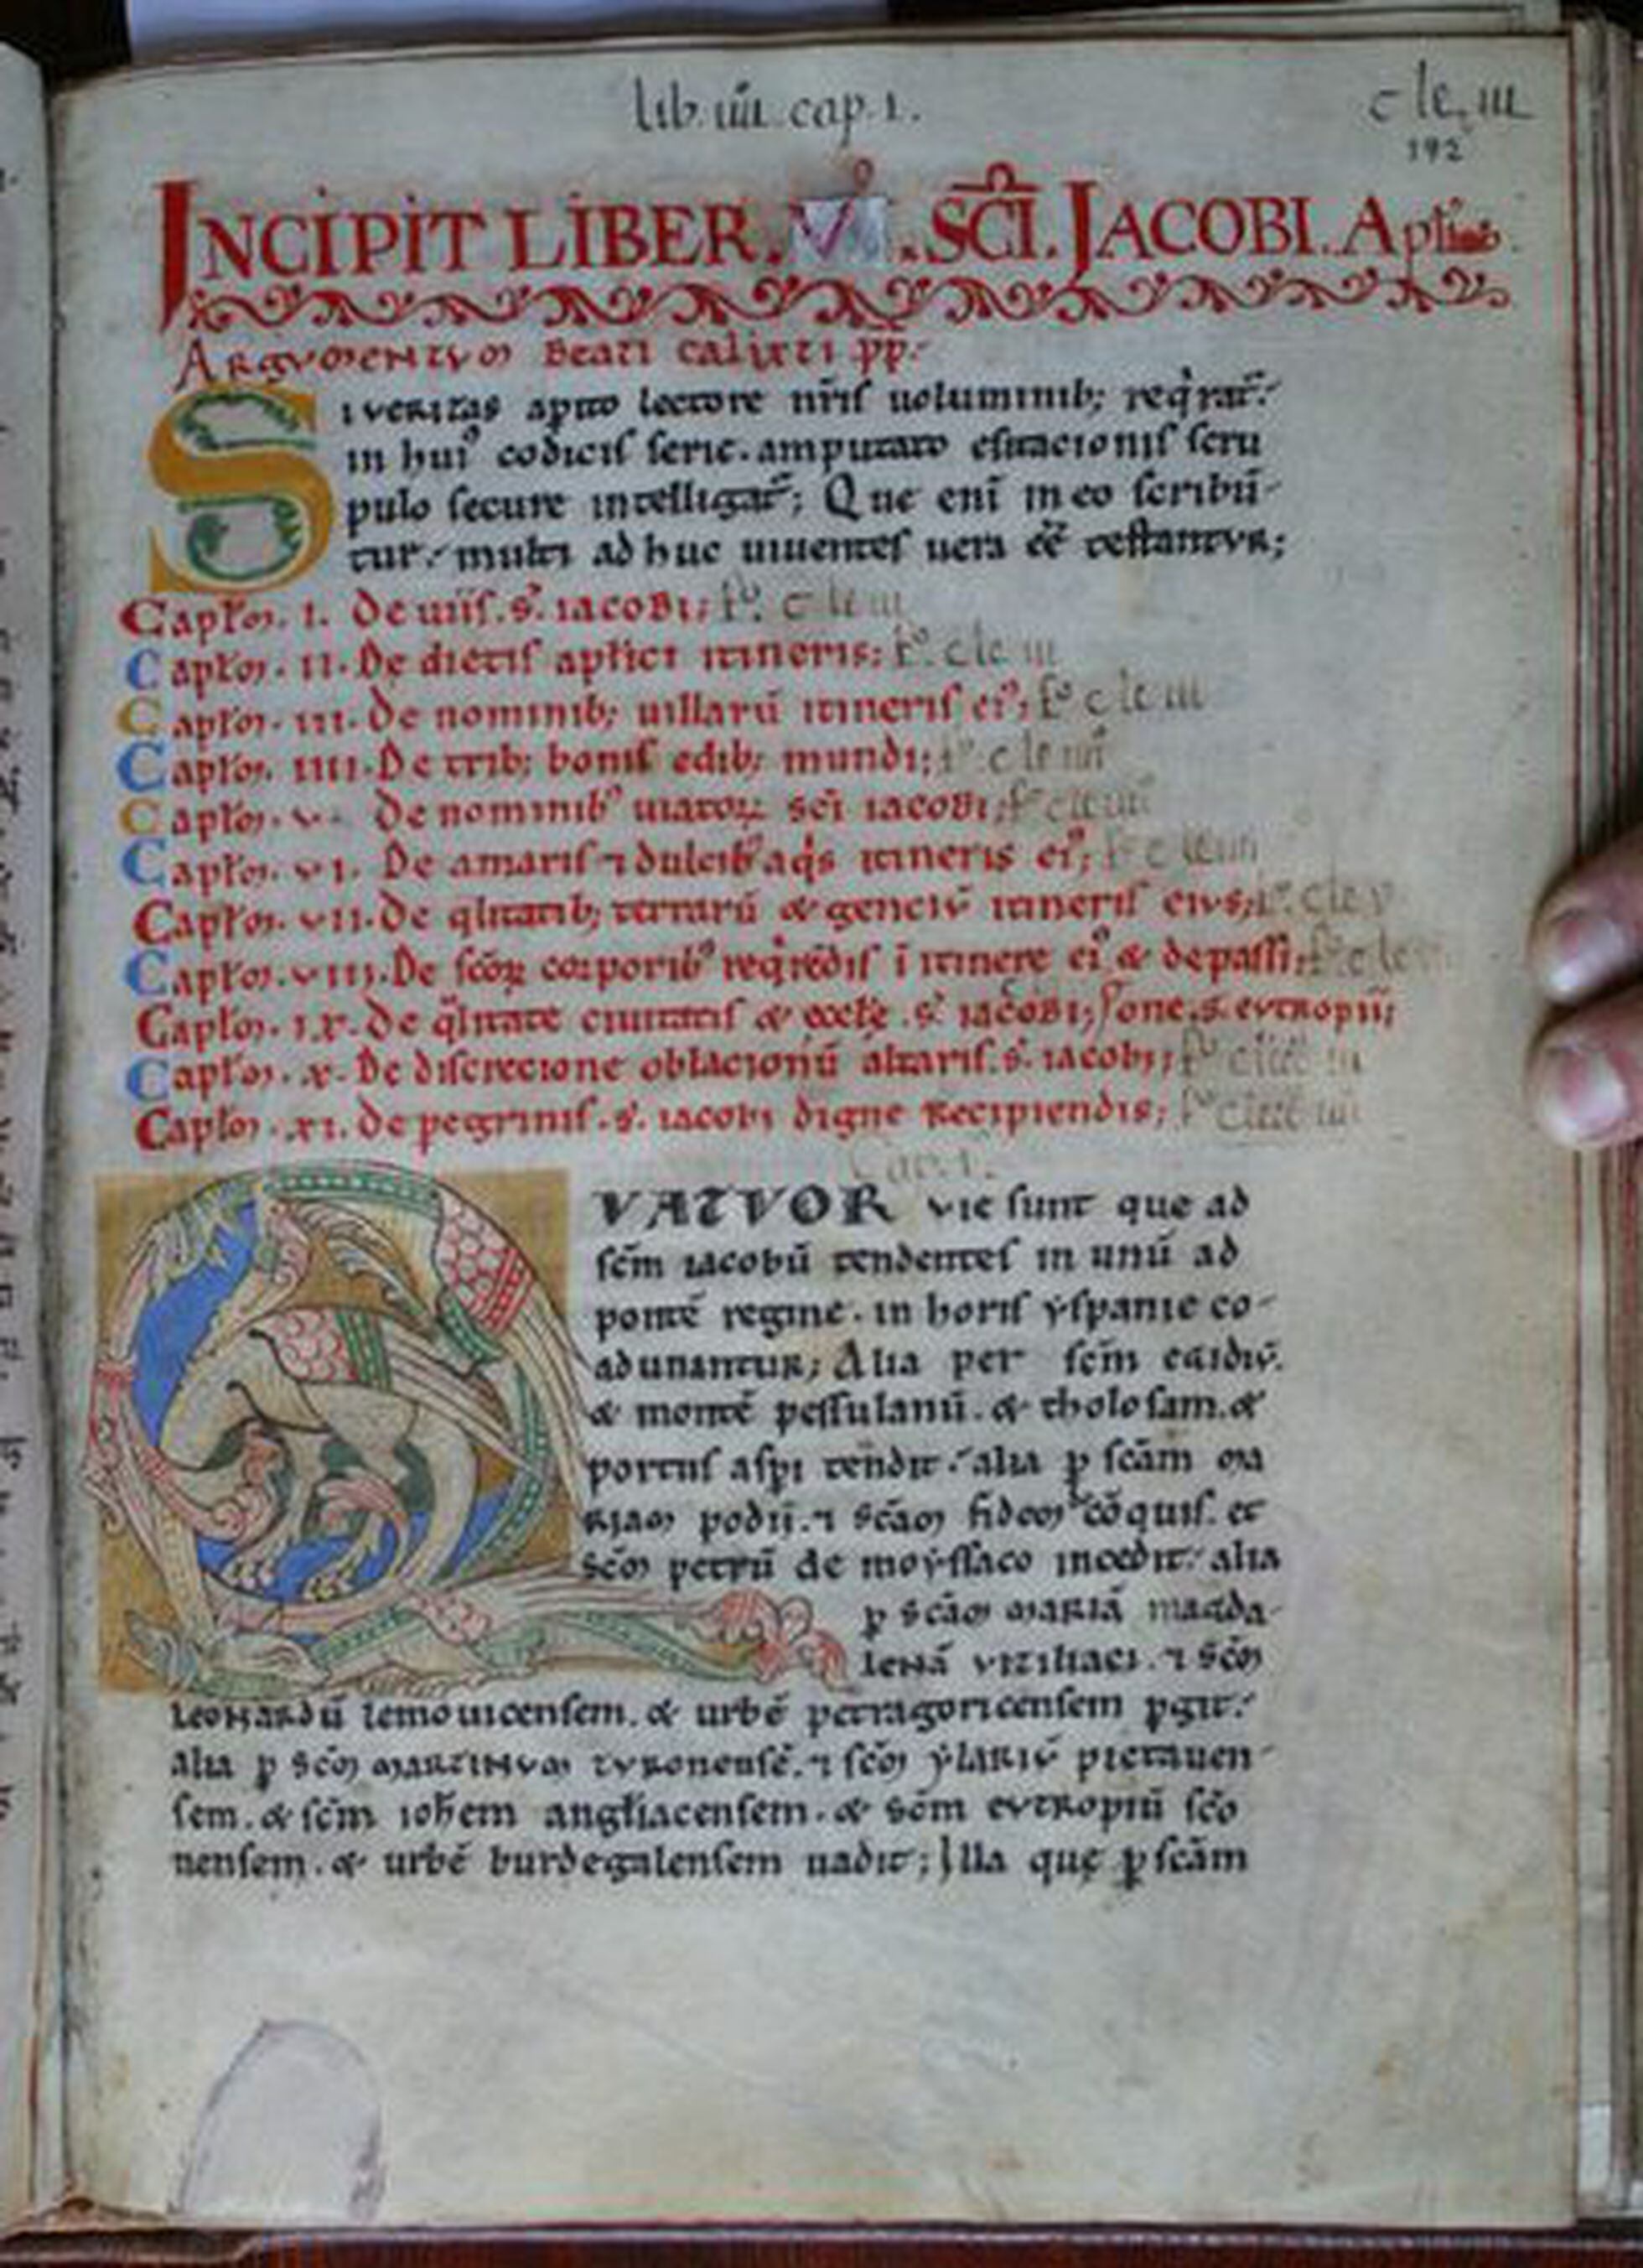 lib. iiii. cap. 1.
c lx. iii
192
INCIPIT LIBER. V. SCI. JACOBI. Apłi
ARGVMENTVM BEATI CALIXTI PP.
SI VERITAS apto lectore nr̄is uoluminib; req̇rat̄
in hui᷒ codicis serie. amputato esitacionis scru
pulo secure intelligat̄; Que enī in eo scribū-
tur. multi ad huc uiuentes uera eē testantur;
Captłm. I. De uiis. s̄. iacobi;
Captłm. II. De dietis apłici itineris;
Captłm. III. De nominib; uillarū itineris ei᷒;
Captłm. IIII. De trib; bonis edib; mundi;
Captłm. V. De nominib᷒ uiatoꝝ sc̄i iacobi;
Captłm. VI. De amaris ⁊ dulcib᷒ aq̇s itineris ei᷒;
Captłm. VII. De q̇litatib; terrarū & genciū itineris eius;
Captłm. VIII. De sc̄oꝝ corporib᷒ req̇rēdis ī itinere ei᷒ & de passi
Captłm. IX. De q̇litate ciuitatis & eccłę. s̄. iacobi; one. s. eutropii;
Captłm. X. De discrecione oblacionū altaris. s̄. iacobi;
Captłm. XI. De peg̀rinis. s̄. iacobi digne recipiendis;
Cap. 1.
QVATVOR vie sunt que ad
sc̄m iacobū tendentes in unū ad
pontē regine. in horis yspanie co-
adunantur; Alia per sc̄m egidiū.
& montē pessulanū. & tholosam. &
portus aspi tendit. alia ꝑ sc̄am ma
riam podii. ⁊ sc̄am fidem cōquis. et
sc̄m petrū de moyssaco incedit. alia
ꝑ sc̄am mariā magda-
lenā viziliaci. ⁊ sc̄m
leonardū lemouicensem. & urbē petragoricensem ꝑgit.
alia ꝑ sc̄m martinum turonensē. ⁊ sc̄m ylariū pictauen-
sem. & sc̄m ioħem angłiacensem. & sc̄m eutropiū scō
nensem. & urbē burdegalensem uadit; Illa quę ꝑ sc̄am